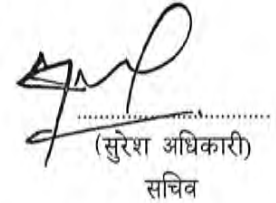 (सुरेश अधिकारी)
सचिव